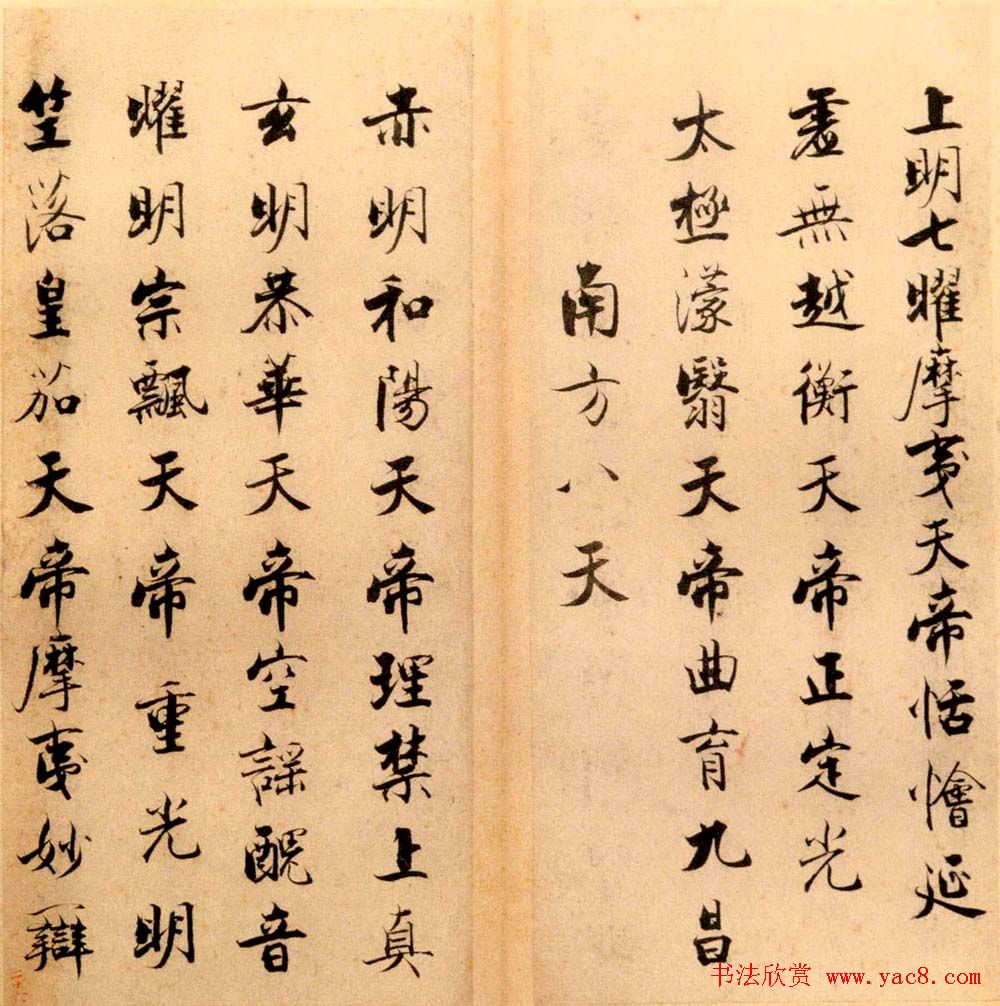 上明七曜摩夷天帝恬懀延
虛無越衡天帝正定光
太極濛翳天帝曲育九昌
南方八天
赤明和陽天帝理禁上真
玄明恭華天帝空謡醜音
耀明宗飄天帝重光明
竺落皇茄天帝摩夷妙辯
书法欣赏 www.yac8.com